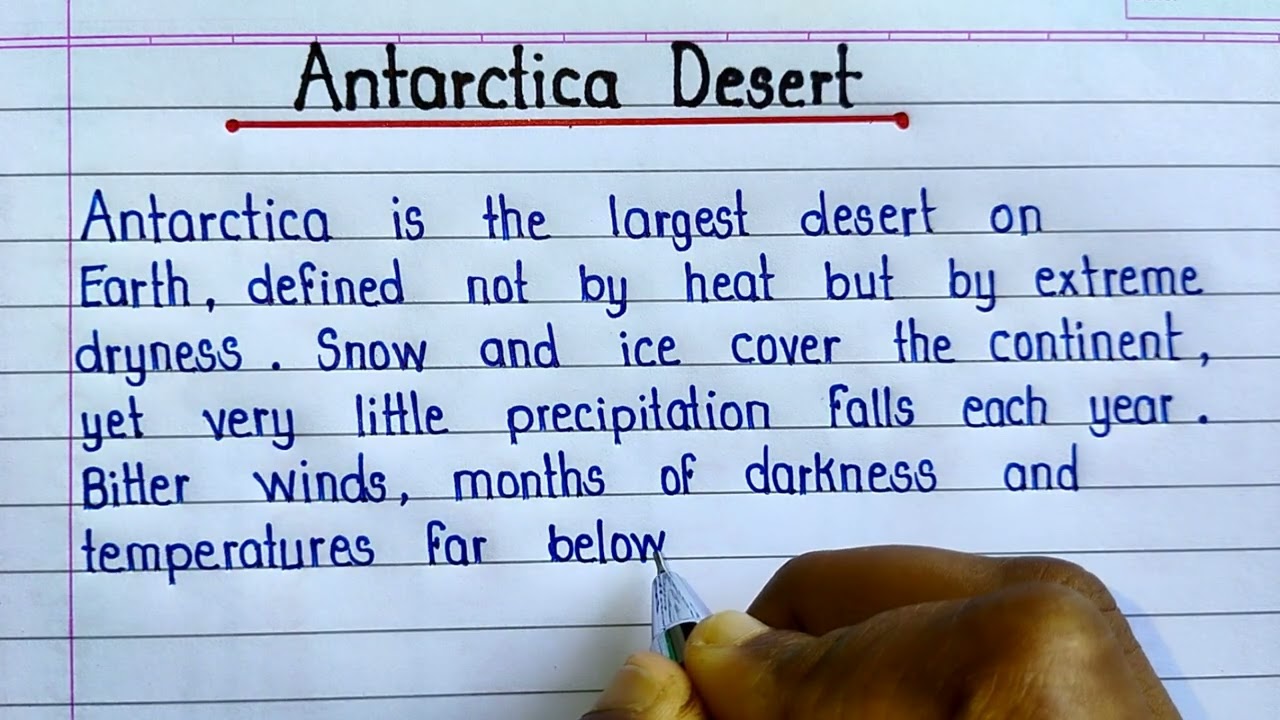 Antarctica Desert
Antarctica is the largest desert on
Earth, defined not by heat but by extreme
dryness. Snow and ice cover the continent,
yet very little precipitation falls each year.
Bitter winds, months of darkness and
temperatures far below